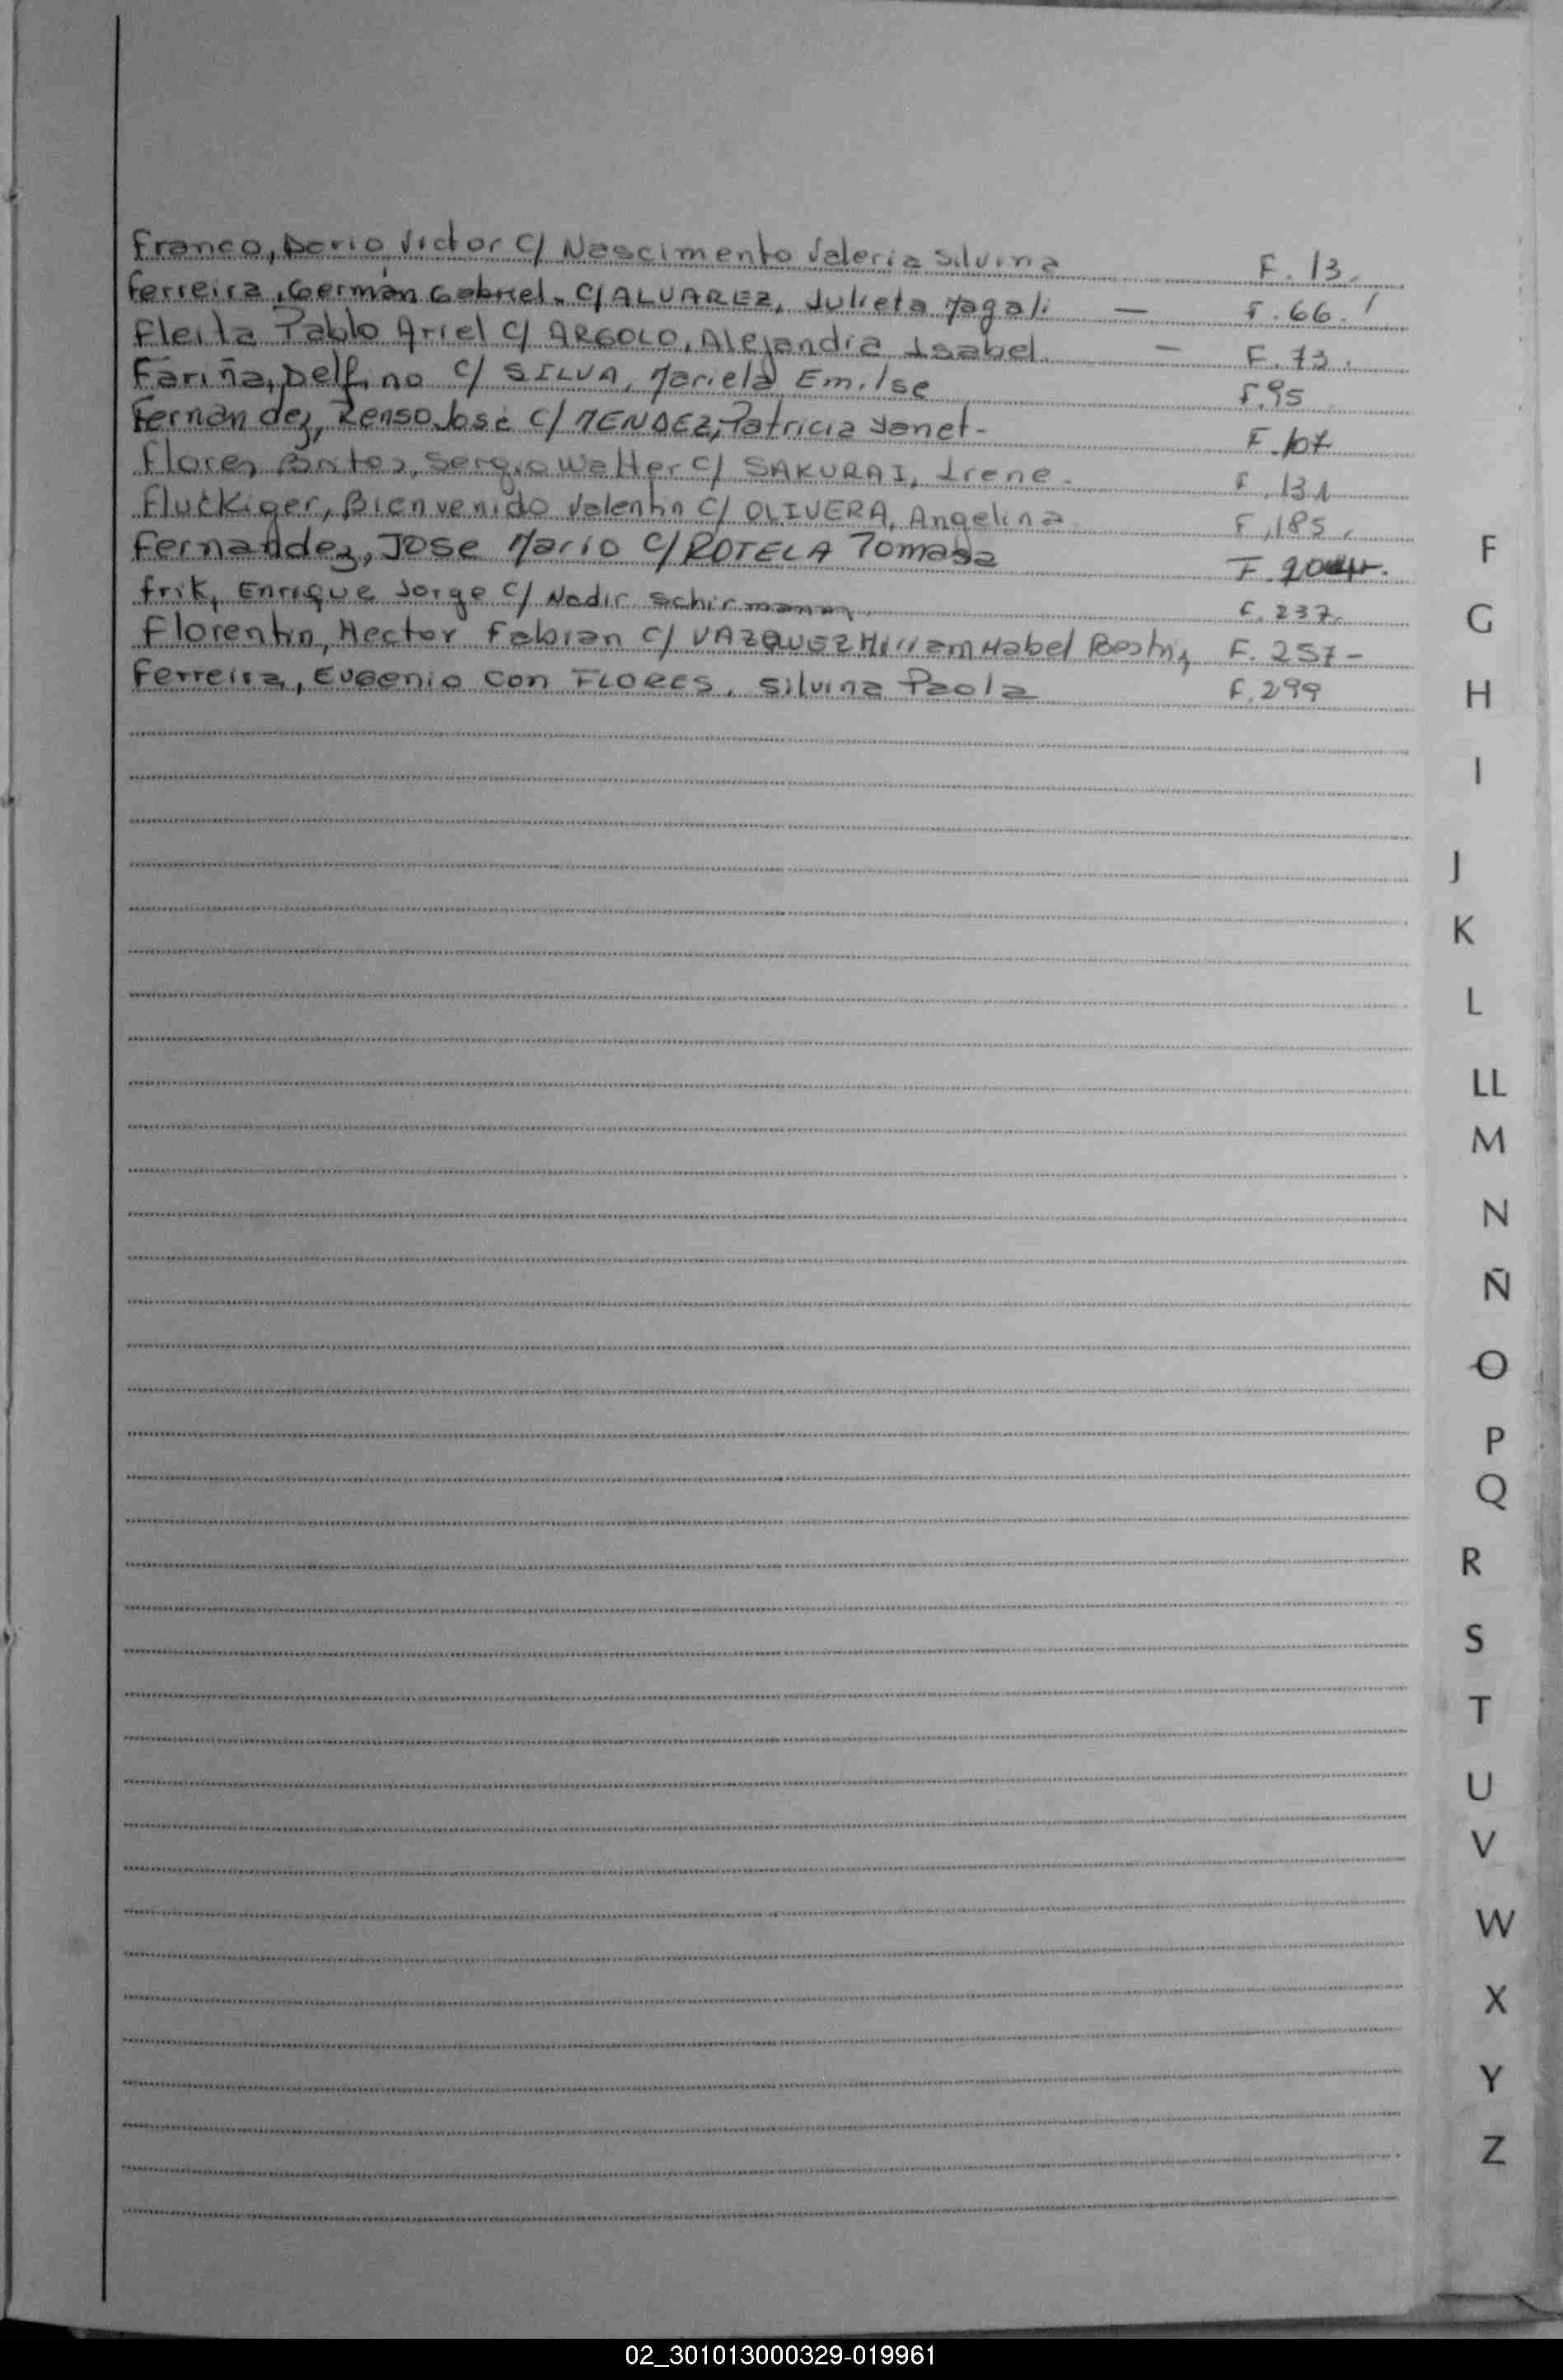 Franco, Dario Victor C/ Nascimento Valeria Silvina F. 13.
Ferreira, Germán Gabriel. C/ ALVAREZ, Julieta Magali — F. 66.
Fleita Pablo Ariel C/ ARGOLO, Alejandra Isabel. — F. 73.
Fariña, Delfino C/ SILVA, Mariela Emilse F. 95
Fernández, Renso José C/ MENDEZ, Patricia Yanet - F. 107
Flores Britos, Sergio Walter C/ SAKURAI, Irene. F. 131
Fluckiger, Bienvenido Valentin C/ OLIVERA, Angelina F. 185.
Fernandez, JOSE Mario C/ ROTELA Tomasa F.
Frik, Enrique Jorge C/ Nadir Schirmann F. 237.
Florentin, Hector Fabian C/ VAZQUEZ Miriam Mabel Beatriz F. 257-
Ferreira, Eugenio con FLORES, Silvina Paola F. 299
F
G
H
I
J
K
L
LL
M
N
Ñ
O
P
Q
R
S
T
U
V
W
X
Y
Z
02_301013000329-019961